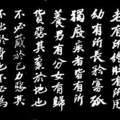 老有所終壯有所用
幼有所長矜寡孤
獨廢疾者皆有所
養男有分女有歸
貨惡其棄於地也
不必藏於己力惡其
不出於身也不